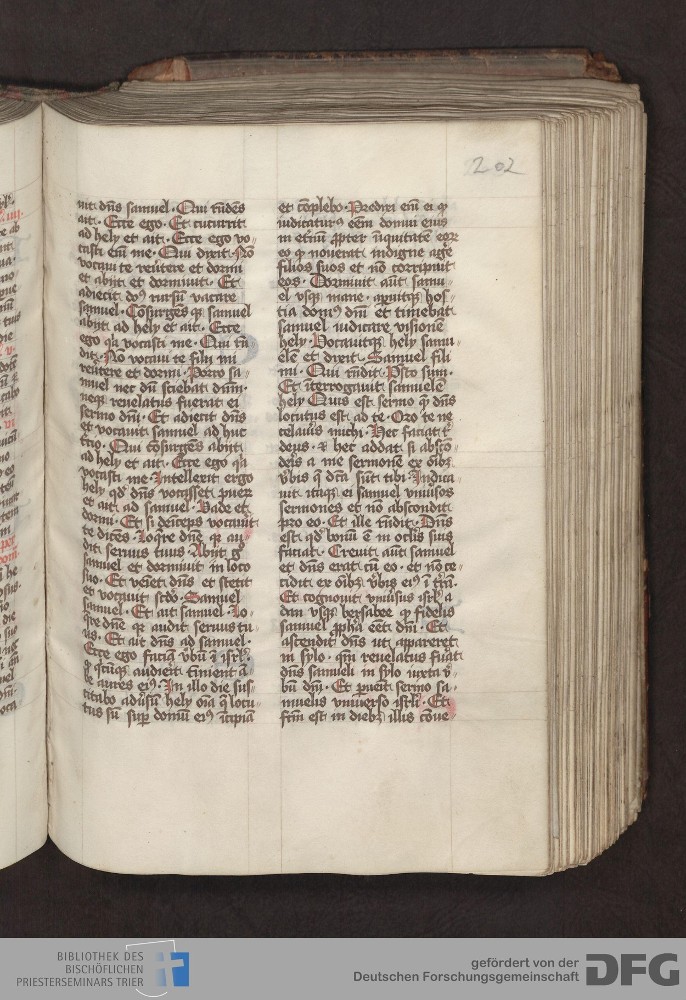 202
uit dn̄s samuel. Qui rn̄dēs
ait. Ecce ego. Et cucurrit
ad hely et ait. Ecce ego vo-
casti em̄ me. Qui dixit. Nō
vocaui te reūtere et dormi
et abijt et dormiuit. Et
adiecit do͡s rursū vocare
samuel. Cōsurgēsqȝ samuel
abijt ad hely et ait. Ecce
ego qꝛ vocasti me. Qui rn̄
dit. Nō vocaui te fili mi
reūtere et dormi. Porro sa-
muel nec dū sciebat dn̄m.
neqȝ reuelatus fuerat ei
sermo dn̄i. Et adiecit dn̄s
et vocauit samuel ad huc
tercio. Qui cōsurgens abijt
ad hely et ait. Ecce ego qꝛ
vocasti me. Intellexit ergo
hely qd̓ dn̄s vocasset puer
et ait ad samuel. Vade et
dormi. Et si deiceps vocauit
te dices. Loqre dn̄e qꝛ au
dit seruus tuus. Abijt g̊
samuel et dormiuit in loco
suo. Et veīet dn̄s et stetit
et vocauit scd̓o. Samuel
samuel. Et ait samuel. Lo-
qre dn̄e qꝛ audit seruus tu-
us. Et ait dn̄s ad samuel.
Ecce ego faciā v̓bū ī isrl̓.
qd̓ qͥcūqȝ audierit tīnient ā
be aures eiꝰ. In illo die sus-
citabo adūsū hely oīa que locu-
tus sū suꝑ domū eiꝰ īcipiā
et cōplebo. Predixi em̄ ei qꝫ
iudicaturꝰ eēm domū eius
in et̓nū ꝓpter īiquitatē eoꝝ
eo qꝫ nouerat indigne age
filios suos et nō corripuit
eos. Dormiuit aūt samu-
el vsqȝ mane. aꝑuitqȝ hos-
tia domꝰ dn̄i et timebat
samuel iudicare visionē
hely. Vocauitqȝ hely samu-
elē et dixit. Samuel fili
mi. Qui rn̄dit. Pn̄to sum.
Et īterrogauit samuelē
hely Quis est sermo quē dn̄s
locutus est ad te. Oro te ne
celauis michi. Hec faciat t̓
deus. et hec addat si absco-
deris a me sermonē ex oībȝ
v̓bis que dc̄a sūt tibi. Indica-
uit itaqȝ ei samuel vniūsos
sermones et nō abscondit
pro eo. Et ille rn̄dit. Dn̄s
est. qd̓ bonū ē in oculis suis
faciat. Creuit aūt samuel
et dn̄s erat cū eo. et nō ce-
cidit ex oībȝ v̓bis eiꝰ ī t̓rā.
Et cognouit vniūsus isrl̓ a
dan vsqȝ bersabee qꝫ fidelis
samuel ꝓph̓a eēt dn̄i. Et
ascendit dn̄s ut appareret
in sylo. qm̄ reuelatus fuat
dn̄s samueli in sylo iuxta v̓-
bū dn̄i. Et puēit sermo sa-
muelis vniuerso isrl̓i. Et
fc̄m est in diebȝ illis cōue-
BIBLIOTHEK DES
BISCHÖFLICHEN
PRIESTERSEMINARS TRIER
gefördert von der
Deutschen Forschungsgemeinschaft
DFG